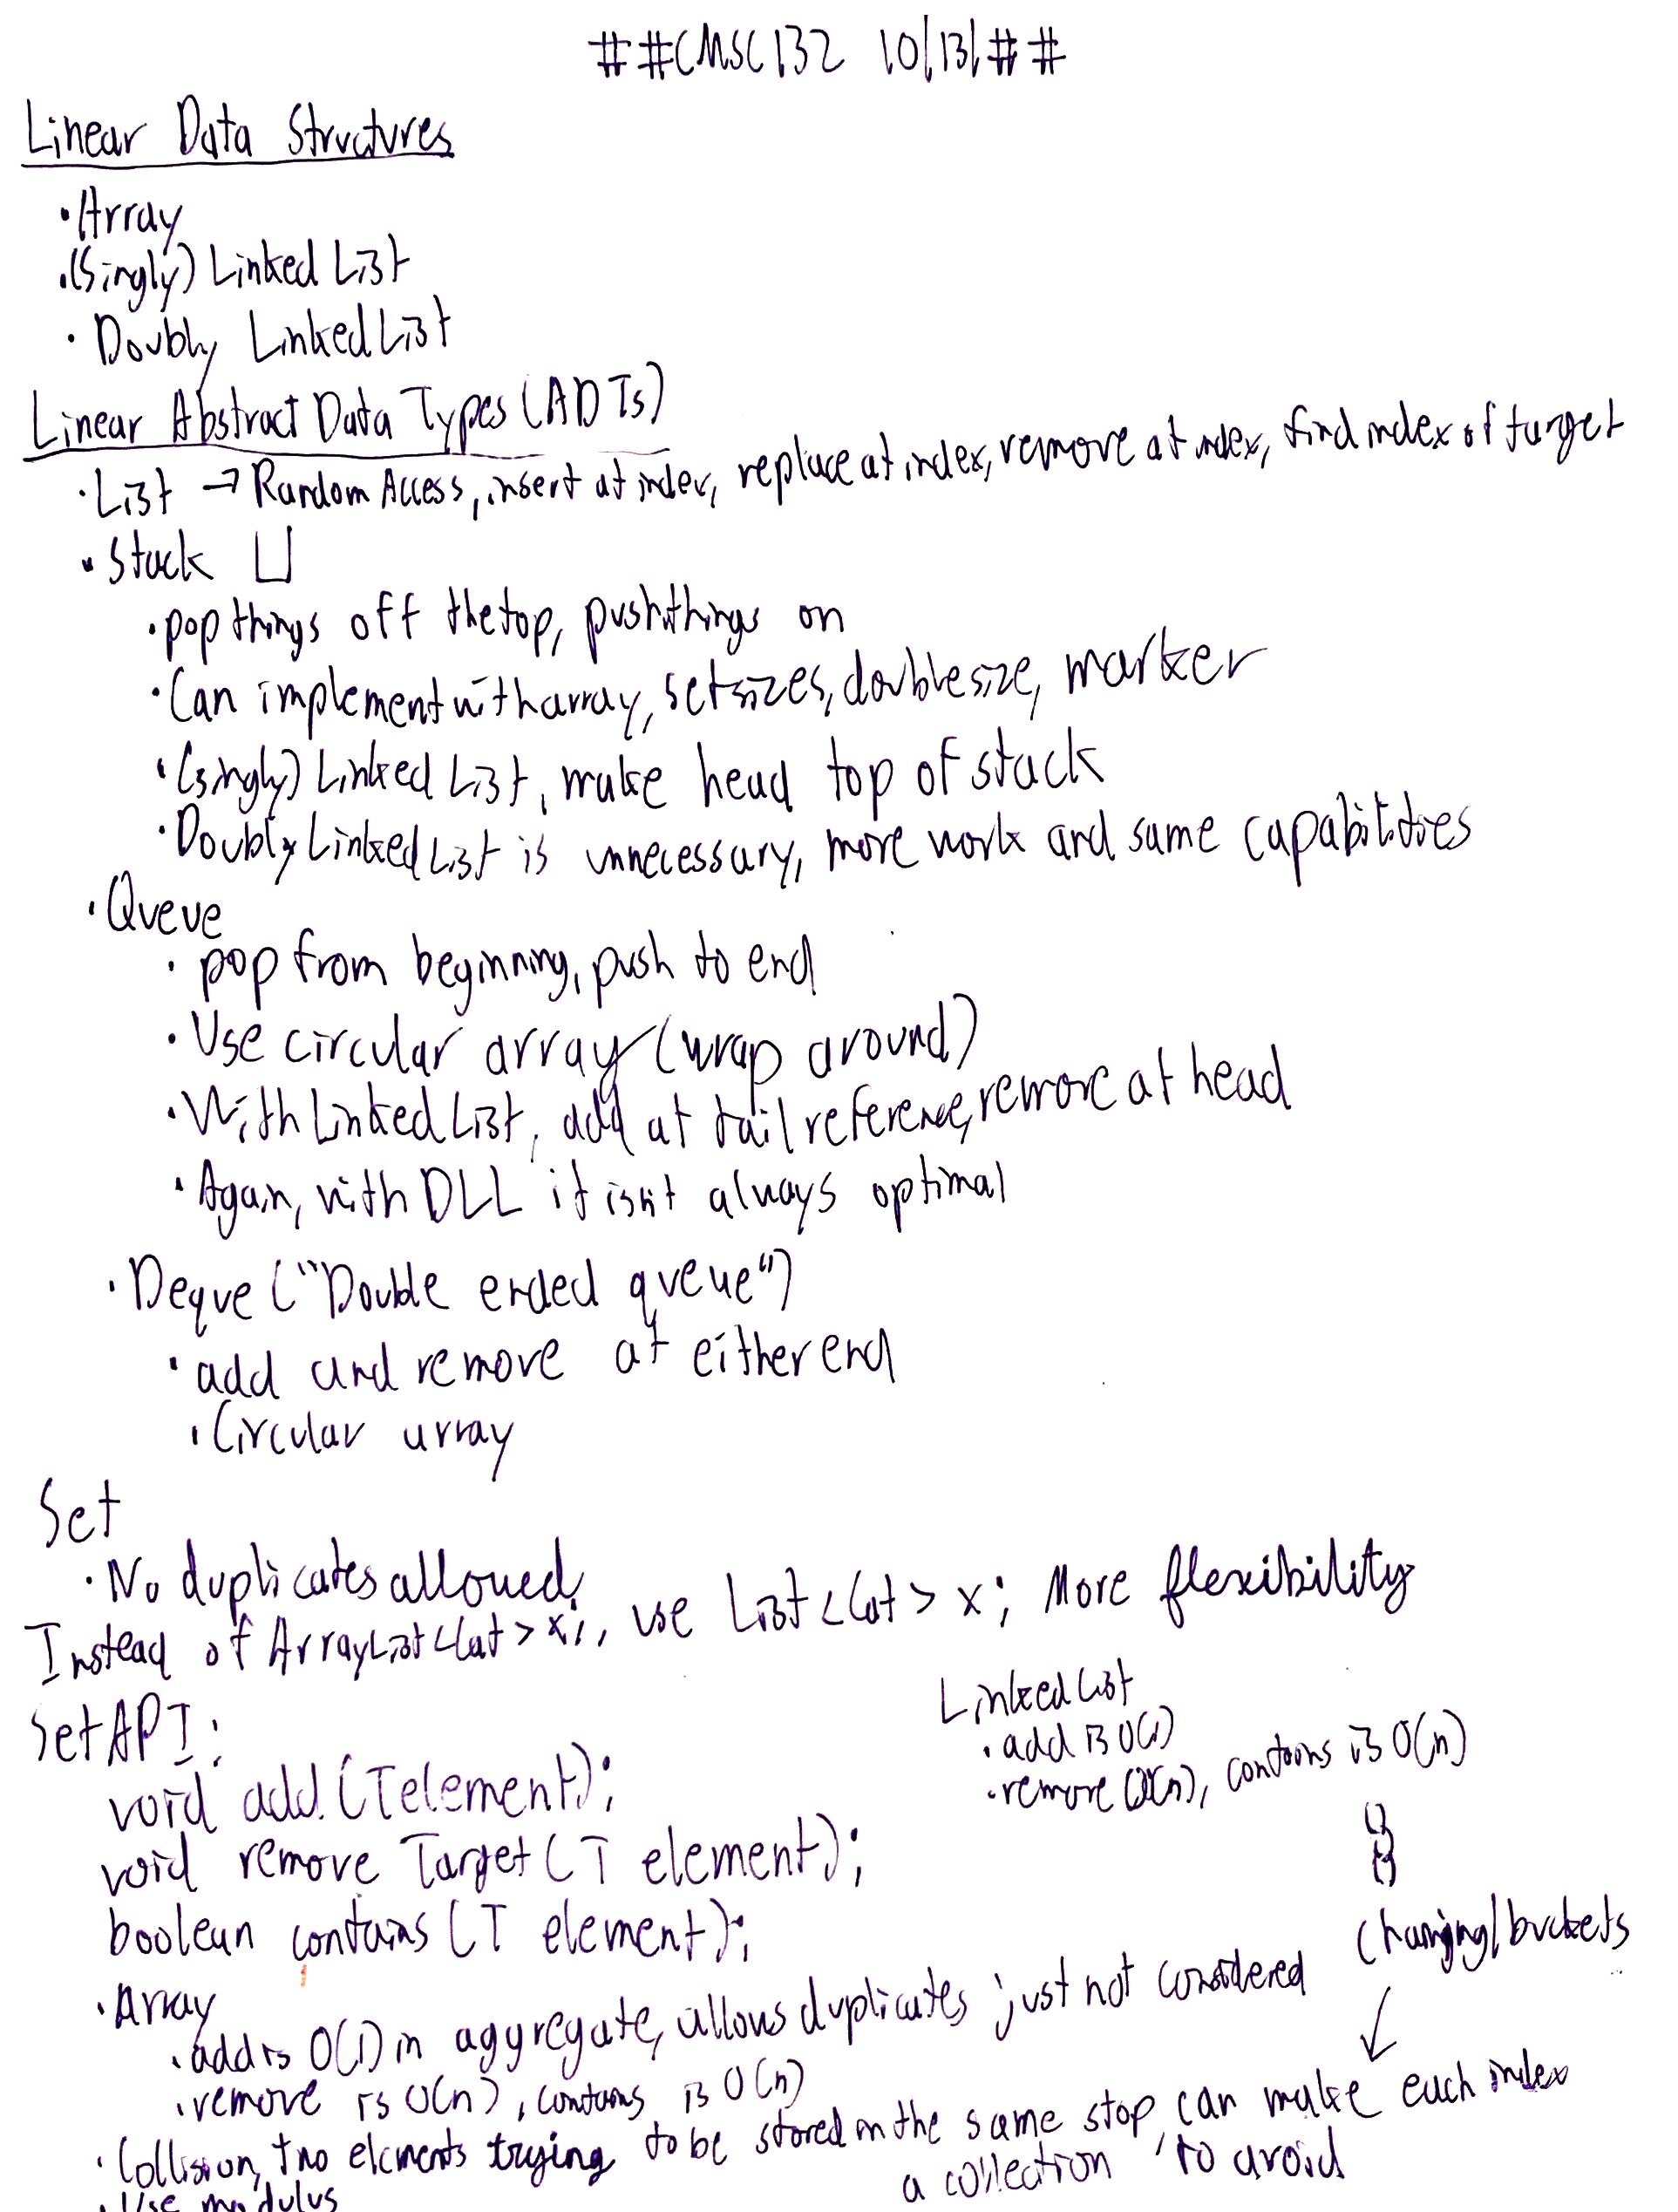 ##CMSC132 10/13/##
Linear Data Structures
·Array
·(Singly) Linked List
·Doubly Linked List
Linear Abstract Data Types (ADTs)
·List → Random Access, insert at index, replace at index, remove at index, find index of target
·Stack
·pop things off the top, push things on
·Can implement with array, set sizes, double size, marker
·(singly) Linked List, make head top of stack
·Doubly Linked List is unnecessary, more work and same capabilities
·Queue
·pop from beginning, push to end
·Use circular array (wrap around)
·With Linked List, add at tail reference, remove at head
·Again, with DLL it isn't always optimal
·Deque ("Double ended queue")
·add and remove at either end
·Circular array
Set
·No duplicates allowed,
Instead of ArrayList<Cat> x;, use List<Cat> x; More flexibility
Set API:
void add(T element);
void remove Target(T element);
boolean contains(T element);
Linked List
·add is O(1)
·remove O(n), contains is O(n)
Chaining/buckets
·Array
·add is O(1) in aggregate, allows duplicates just not considered
·remove is O(n), contains is O(n)
·Collision, two elements trying to be stored in the same stop, can make each index
a collection to avoid
·Use modulus